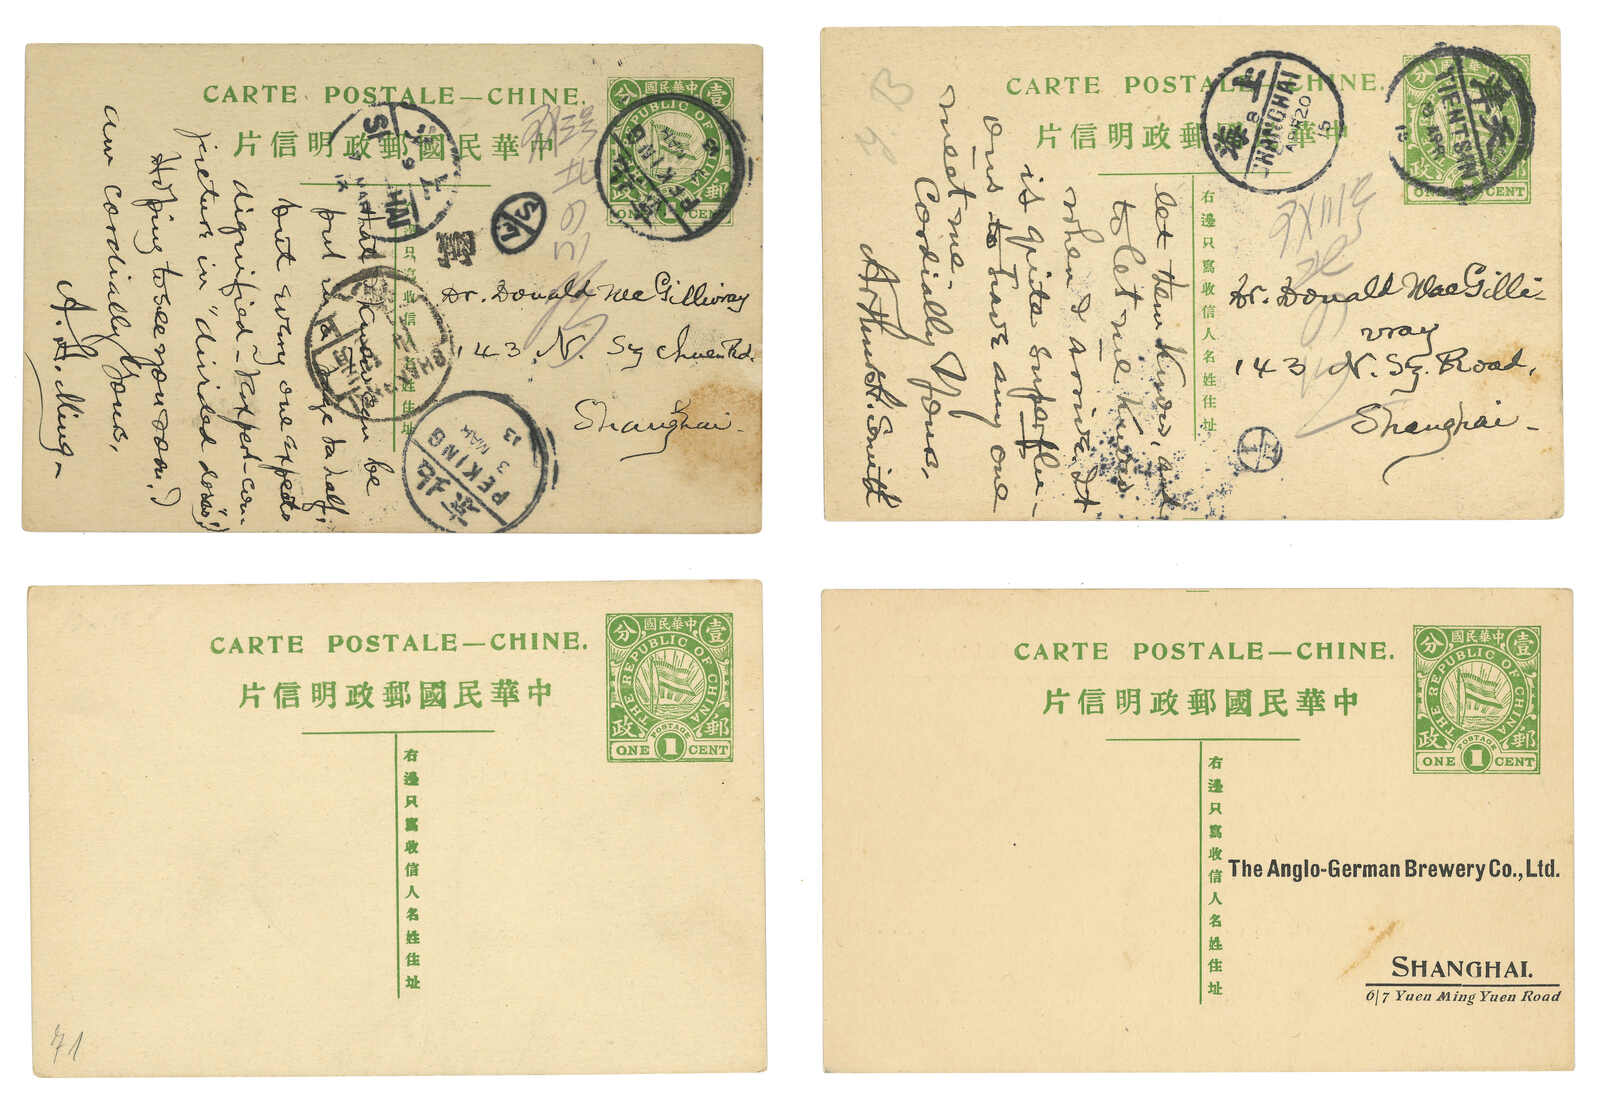 CARTE POSTALE—CHINE.
中華民國郵政明信片
中華民國
壹
分
THE REPUBLIC OF CHINA
ONE CENT
北京
PEKING
MAR
SHANGHAI
S.F.
that Knowlton be
put in a page to half,
but every one expects
dignified - Rupert - com
picture in "divided doses"!
Hoping to see you soon, I
am cordially Yours,
Dr. Donald MacGillivray
143 N. Sz chuen Rd.
Shanghai -
北京
PEKING
3
MAR
13
CARTE POSTALE—CHINE.
中華民國郵政明信片
上海
SHANGHAI
8
APR 20
15
天津
TIENTSIN
APR
15
分
ONE CENT
右邊只寫收信人名姓住址
let them know, and
to let me know
when I arrive. It
is quite superflu-
ous to have any one
meet me.
Cordially Yours,
Arthur H. Smith
Dr. Donald MacGilli-
vray
143 N. Sz. Road,
Shanghai -
CARTE POSTALE—CHINE.
中華民國郵政明信片
中華民國
壹
分
THE REPUBLIC OF CHINA
郵
政
POSTAGE
ONE 1 CENT
右邊只寫收信人名姓住址
71
CARTE POSTALE—CHINE.
中華民國郵政明信片
中華民國
壹
分
THE REPUBLIC OF CHINA
郵
政
POSTAGE
ONE 1 CENT
右邊只寫收信人名姓住址
The Anglo-German Brewery Co., Ltd.
SHANGHAI.
6/7 Yuen Ming Yuen Road